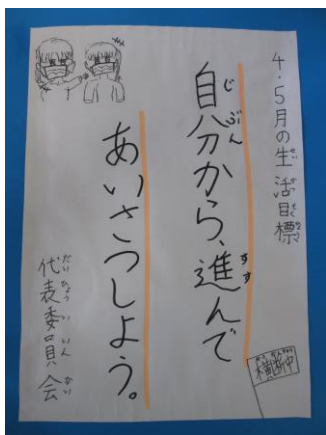 4・5月の生活目標
自分から、進んで
あいさつしよう。
代表委員会
横断中